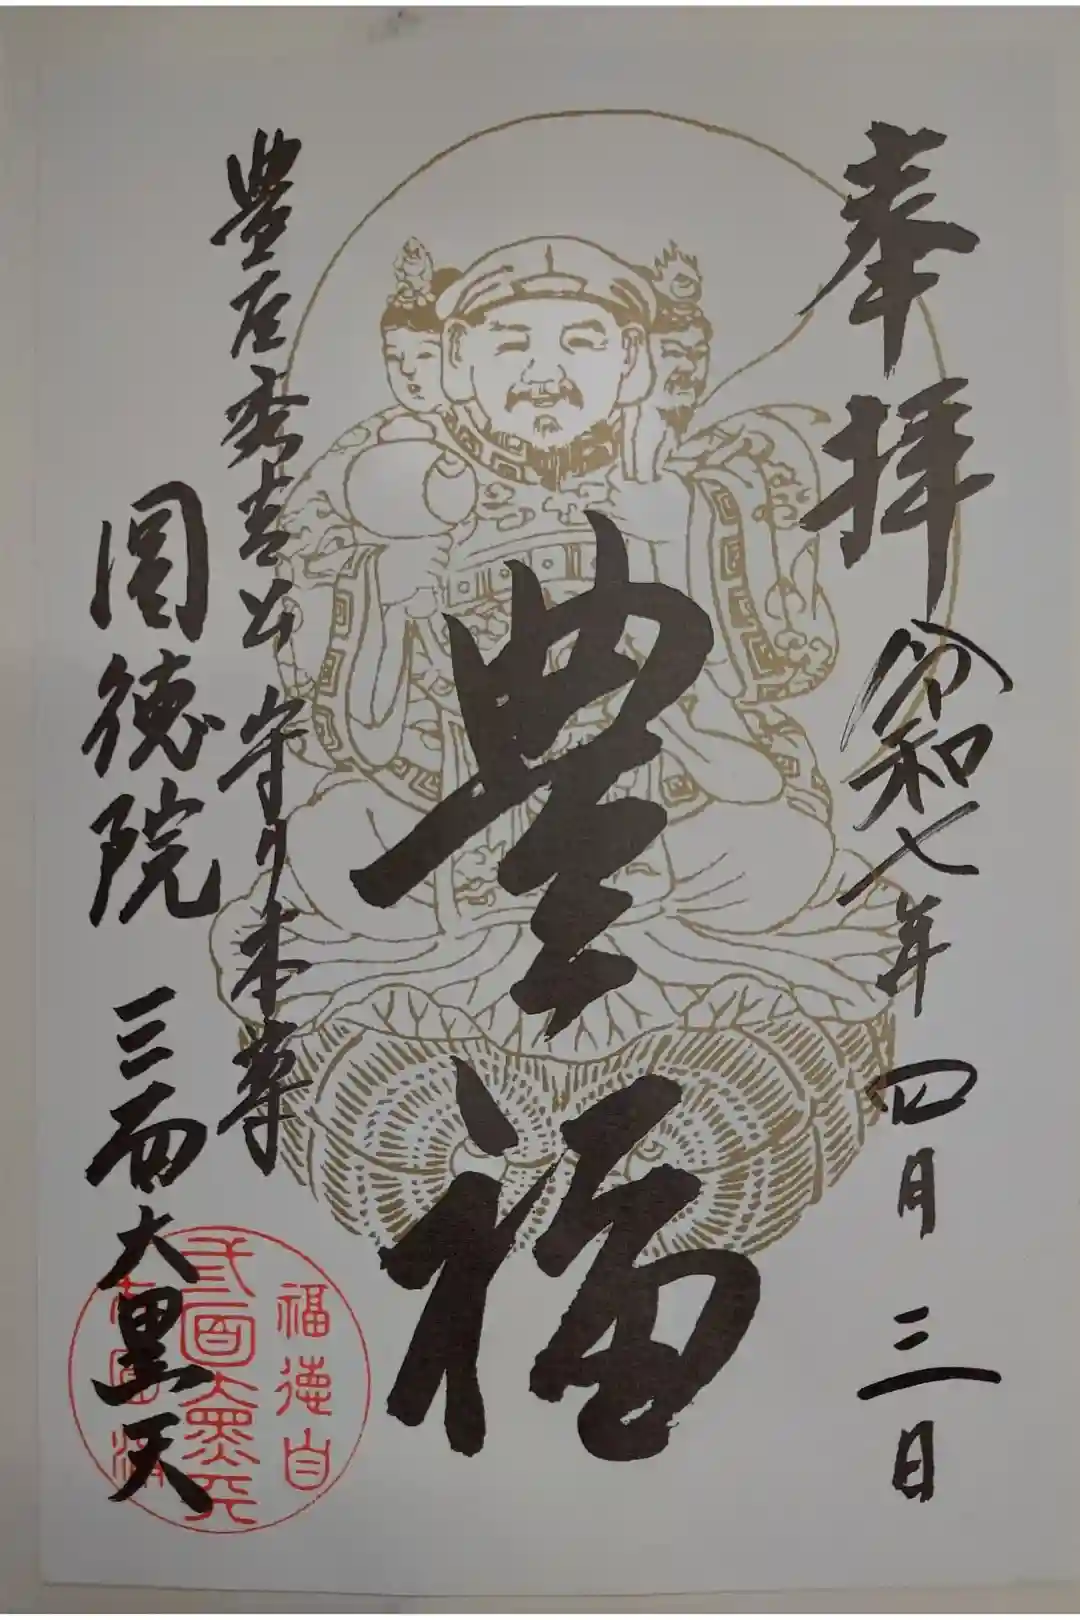 奉拝
令和七年 四月 三日
豊福
豊臣秀吉公 守り本尊
圓徳院 三面大黒天
福徳自
三面大黒天